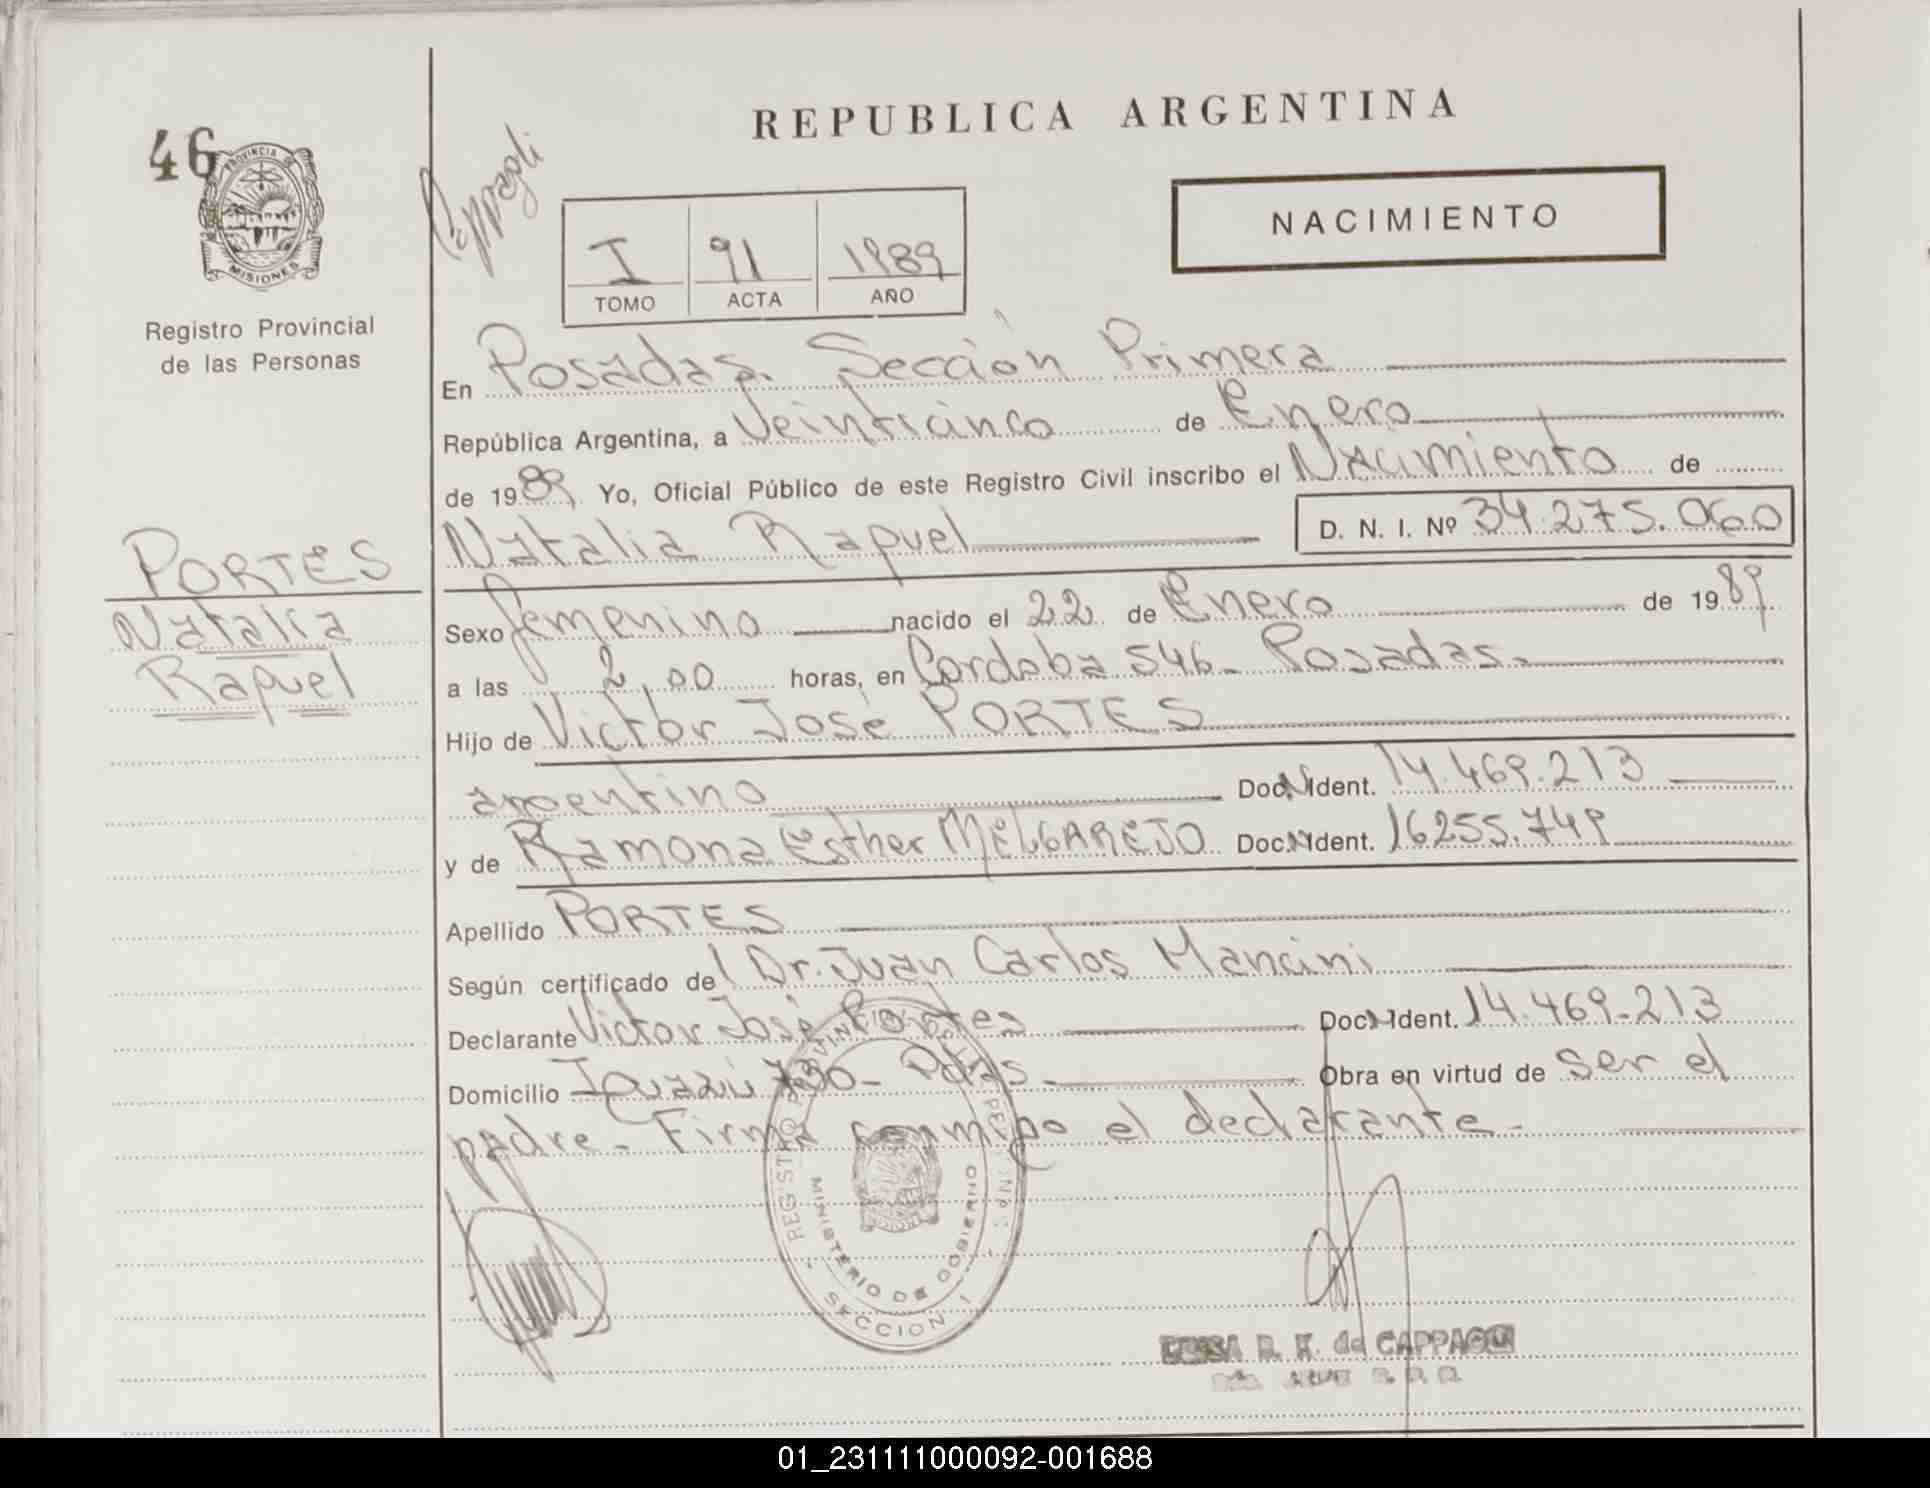 REPUBLICA ARGENTINA
46
PROVINCIA DE
MISIONES
Registro Provincial
de las Personas
Cappagli
I 91 1989
TOMO ACTA AÑO
NACIMIENTO
En Posadas. Sección Primera
República Argentina, a Veinticinco de Enero
de 1989. Yo, Oficial Público de este Registro Civil inscribo el Nacimiento de
Natalia Raquel D. N. I. Nº 34.275.060
PORTES
Natalia
Raquel
Sexo femenino nacido el 22 de Enero de 1989
a las 2,00 horas, en Cordoba 546- Posadas.
Hijo de Victor José PORTES
argentino Doc. Ident. 14.469.213
y de Ramona Esther MELGAREJO Doc. Ident. 16255.749
Apellido PORTES
Según certificado del Dr. Juan Carlos Mancini
Declarante Victor José Portes Doc. Ident. 14.469.213
Domicilio Iguazú 730- Pdas Obra en virtud de ser el
padre- Firma conmigo el declarante-
REGISTRO PROVINCIAL DE LAS PERSONAS
MINISTERIO DE GOBIERNO
SECCION 1
R. K. de CAPPAGLI
01_231111000092-001688